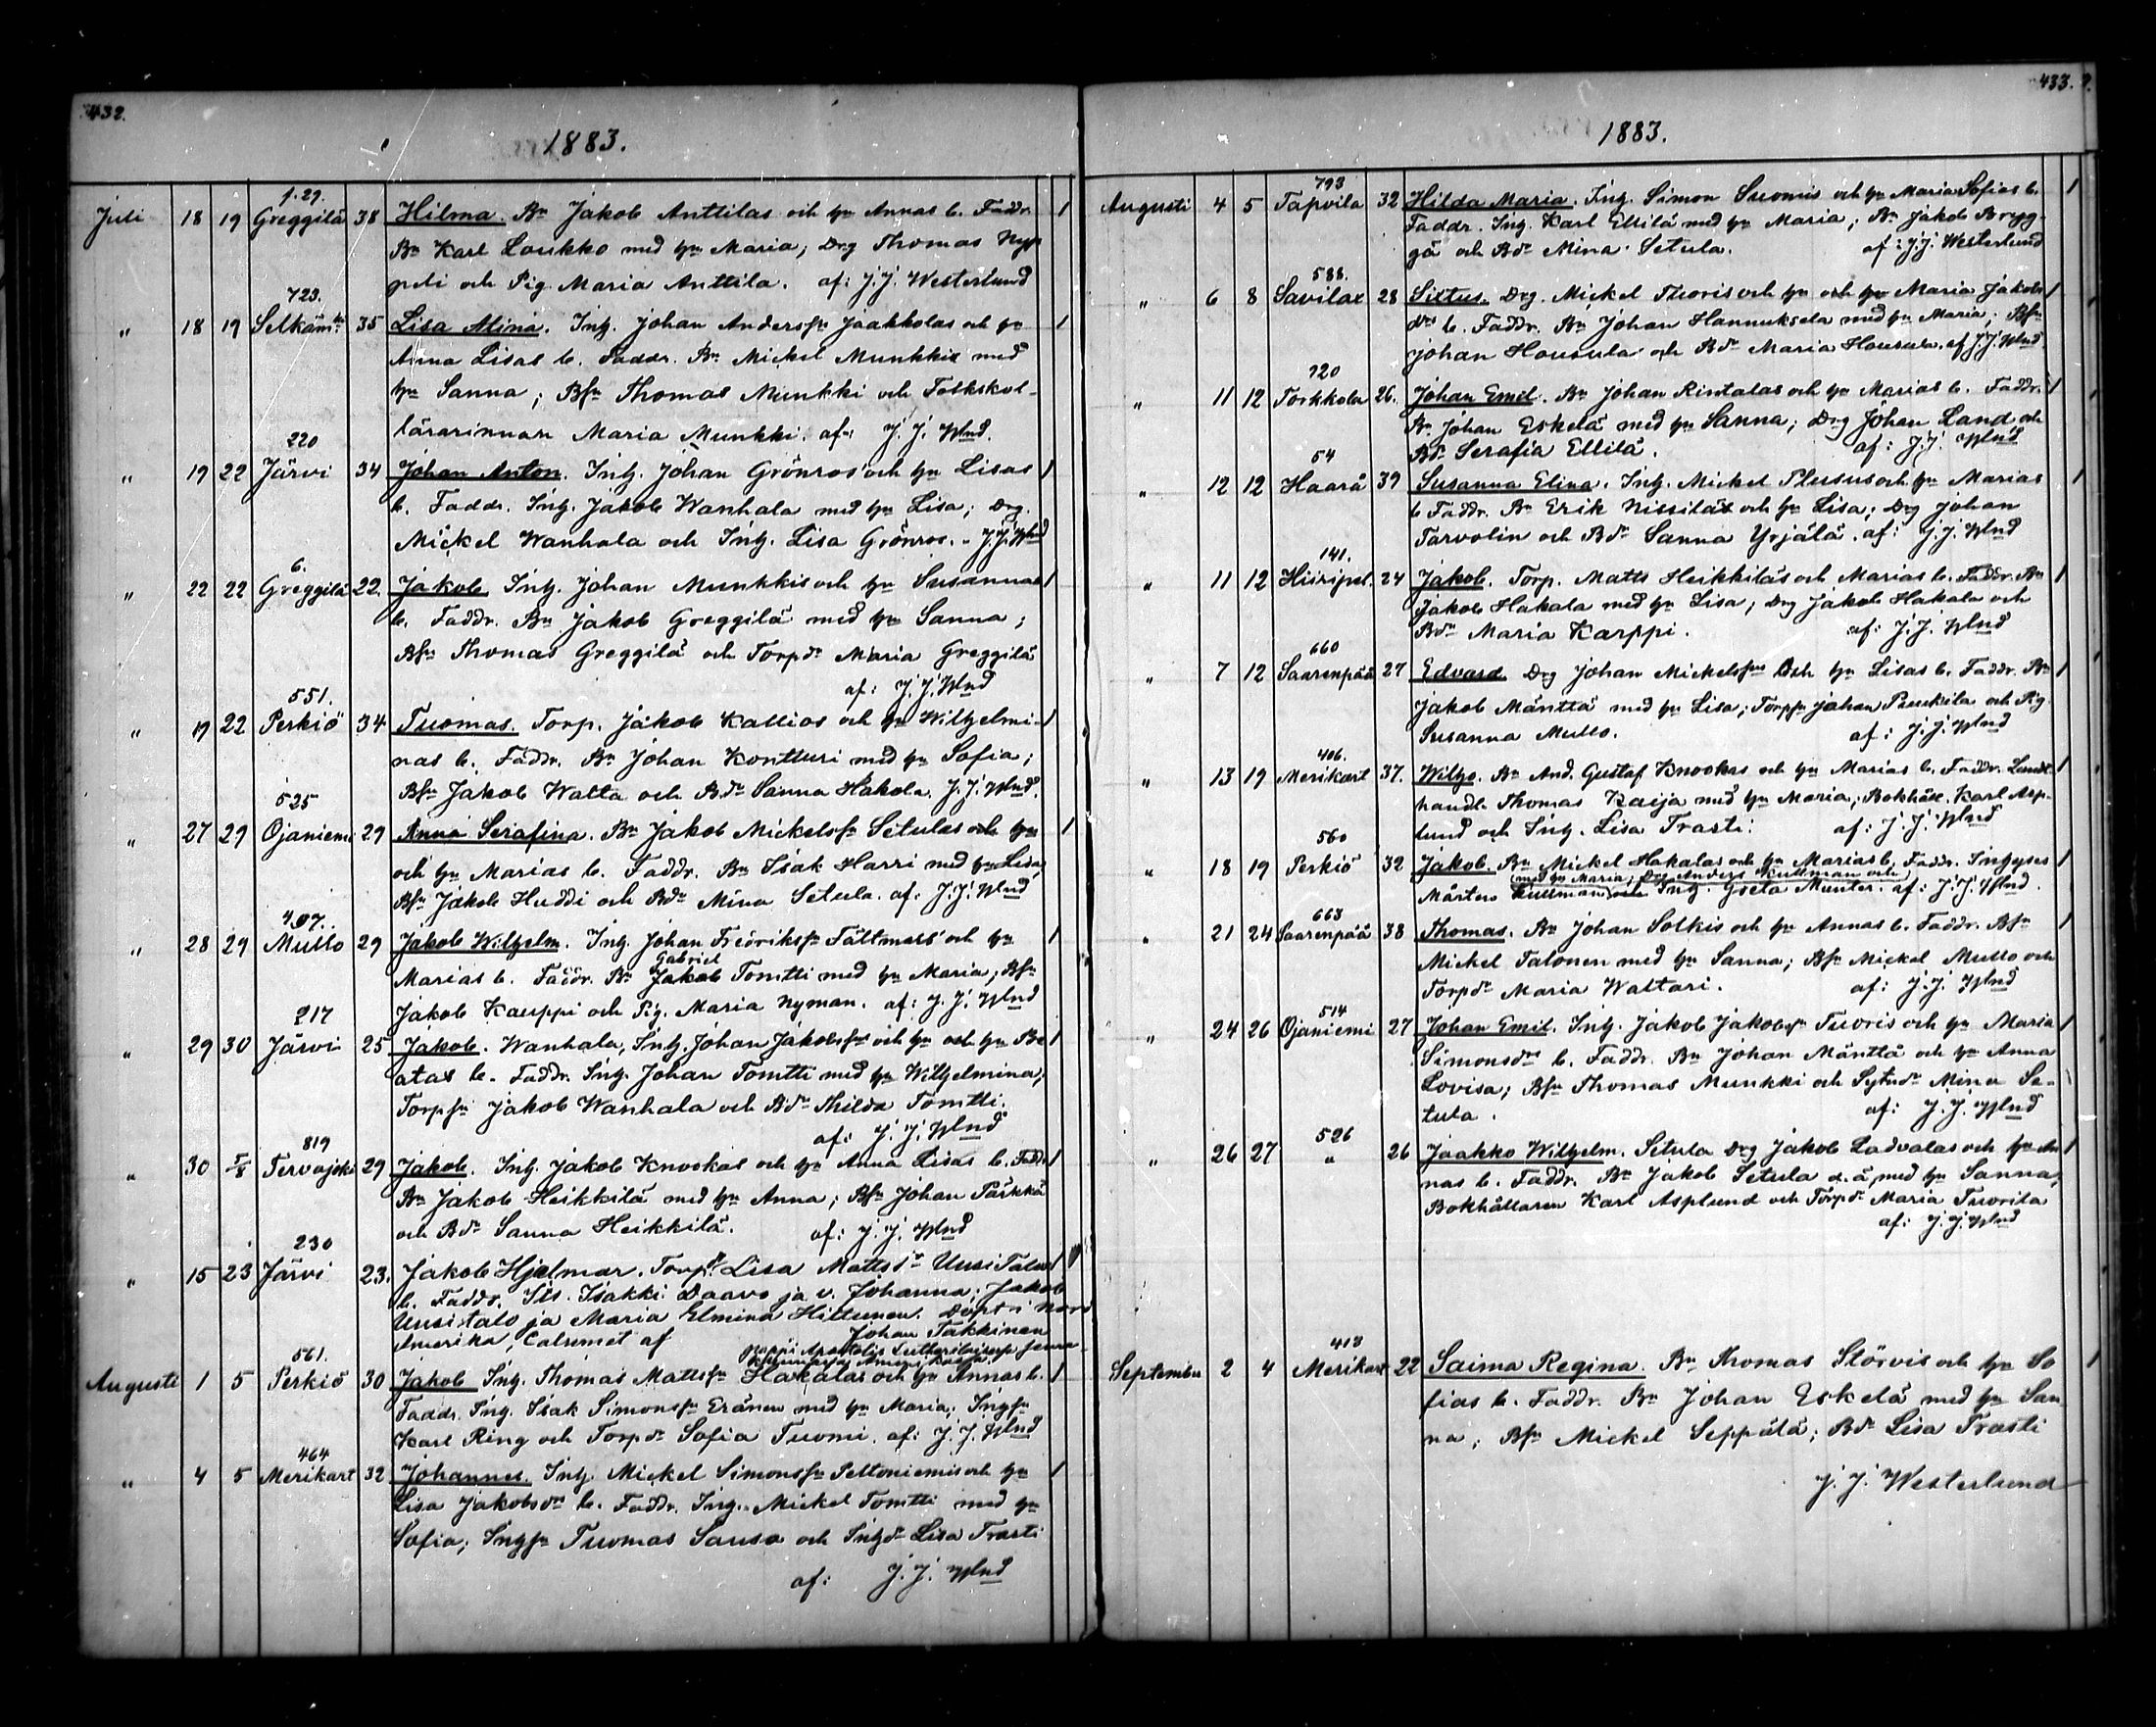 432.
1883.
f. 29.
Juli 18 19 Greggilä 38 Hilma. Bn Jakob Anttilas och hu Annas b. Faddr. 1
Bn Karl Loukko med hu Maria; Drg Thomas Nyp
peli och Pig. Maria Anttila. af: J. J. Westerlund
723.
" 18 19 Selkäm 35 Lisa Mina. Ing. Johan Anderssn Jaakkolas och hu 1
Anna Lisas b. Faddr. Bn Mickel Munkki med
hu Sanna; Bsn Thomas Munkki och Folkskol-
lärarinnan Maria Munkki. af: J. J. Wlnd.
220
" 19 22 Järvi 34 Johan Anton. Ing. Johan Grönros och hu Lisas 1
b. Faddr. Ing. Jakob Wanhala med hu Lisa; Drg.
Mickel Wanhala och Ing. Lisa Grönros. - J. J. Wlnd
6.
" 22 22 Greggilä 22. Jakob. Ing. Johan Munkkis och hu Susannas 1
b. Faddr. Bn Jakob Greggilä med hu Sanna;
Bsn Thomas Greggilä och Torpdr Maria Greggilä
af: J. J. Wlnd
551.
" 19 22 Perkiö 34 Tuomas. Torp. Jakob Kallios och hu Wilhelmi- 1
nas b. Faddr. Bn Johan Kontturi med hu Sofia;
Bsn Jakob Watta och Bdr Sanna Hakola. J. J. Wlnd.
525
" 27 29 Ojaniemi 29 Anna Serafina. Bn Jakob Mickelssn Setulas och hu 1
och hu Marias b. Faddr. Bn Isak Harri med hu Lisa;
Bsn Jakob Huddi och Bdr Mina Setula. af: J. J. Wlnd
497.
" 28 29 Mullo 29 Jakob Wilhelm. Ing. Johan Fredrikssn Fältmars och hu 1
Gabriel
Marias b. Faddr. Bn Jakob Tomtti med hu Maria; Bsn
Jakob Kauppi och Pig. Maria Nyman. af: J. J. Wlnd
217
" 29 30 Järvi 25 Jakob. Wanhala, Ing. Johan Jakobssns och hu och hu Be 1
atas b. Faddr. Ing. Johan Tomtti med hu Wilhelmina;
Torpsn Jakob Wanhala och Bdr Hilda Tomtti.
af: J. J. Wlnd
819
" 30 5/8 Tervajoki 29 Jakob. Ing. Jakob Knookas och hu Anna Lisas b. Faddr. 1
Bn Jakob Heikkilä med hu Anna; Bsn Johan Pärkkä
och Bdr Sanna Heikkilä. af: J. J. Wlnd
230
" 15 23 Järvi 23. Jakob Hjelmar. Torpdr Lisa Mattsdr UusiTalos 1
b. Faddr. Its. Isakki Daavo ja v. Johanna; Jakob
Uusitalo ja Maria Elmina Hittunen. Döpt i Nord
Amerika, Calumet af Johan Takkinen
pappi Apostolis Lutterilaisessa seura-
561.
Augusti 1 5 Perkiö 30 Jakob Ing. Thomas Mattssn Hakalas och hu Annas b. 1
Faddr. Ing. Isak Simonssn Eränen med hu Maria; Ingsn
Karl Ring och Torpdr Sofia Tuomi. af: J. J. Wlnd
464
" 4 5 Merikart 32 Johannes. Ing. Mickel Simonssn Peltoniemis och hu 1
Lisa Jakobsdr b. Faddr. Ing. Mickel Tomtti med hu
Sofia; Ingsn Tuomas Sausa och Ingdr Lisa Trasti
af: J. J. Wlnd
433.
1883.
793
Augusti 4 5 Tapvila 32 Hilda Maria. Ing. Simon Suomis och hu Maria Sofias b. 1
Faddr. Ing. Karl Ellilä med hu Maria; Bn Jakob Brygg-
gä och Bdr Mina Setula. af: J. J. Westerlund
588.
" 6 8 Savilax 28 Sixtus. Drg. Mickel Tuoris och hu och hu Maria Jakobs 1
dr b. Faddr. Bn Johan Hannuksela med hu Maria; Bsn
Johan Housula och Bdr Maria Housula. af J. J. Wlnd
720
" 11 12 Torkkola 26. Johan Emil. Bn Johan Rintalas och hu Marias b. Faddr. 1
Bn Johan Eskelä med hu Sanna; Drg Johan Land och
Bdr Serafia Ellilä. af: J. J. Wlnd
54
" 12 12 Haarä 39 Susanna Elina. Ing. Mickel Plusus och hu Marias 1
b. Faddr. Bn Erik Nissiläs och hu Lisa; Drg Johan
Tarvolin och Bdr Sanna Yrjälä. af: J. J. Wlnd
141.
" 11 12 Hiiripel. 24 Jakob. Torp. Matts Heikkiläs och Marias b. Faddr. Bn 1
Jakob Hakala med hu Lisa; Drg Jakob Hakala och
Bdr Maria Karppi. af: J. J. Wlnd
660
" 7 12 Saarenpää 27 Edvard. Drg Johan Mickelssns och hu Lisas b. Faddr. Bn 1
Jakob Mänttä med hu Lisa; Torpsn Johan Puukila och Pig
Susanna Mullo. af: J. J. Wlnd
406.
" 13 19 Merikart 37. Wilho. Bn And. Gustaf Knookas och hu Marias b. Faddr. Landt 1
handl. Thomas Kaija med hu Maria; Bokhåll. Karl Asp-
lund och Ing. Lisa Trasti. af: J. J. Wlnd
560
" 18 19 Perkiö 32 Jakob. Bn Mickel Hakalas och hu Marias b. Faddr. Inhyses 1
(med hu Maria; Drg Anders Kullman och)
Mårten Kullman och Ing. Greta Munter. af: J. J. Wlnd.
663
" 21 24 Saarenpää 38 Thomas. Bn Johan Solkis och hu Annas b. Faddr. Bsn 1
Mickel Talonen med hu Sanna; Bsn Mickel Mullo och
Torpdr Maria Waltari. af: J. J. Wlnd
514
" 24 26 Ojaniemi 27 Johan Emil. Ing. Jakob Jakobssn Tuoris och hu Maria 1
Simonsdrs b. Faddr. Bn Johan Mänttä och hu Anna
Lovisa; Bsn Thomas Munkki och Sytndr Mina Se-
tula. af: J. J. Wlnd
526
" 26 27 " 26 Jaakko Wilhelm. Setula Drg Jakob Ladvalas och hu An 1
nas b. Faddr. Bn Jakob Setula d. ä. med hu Sanna;
Bokhållaren Karl Asplund och Torpdr Maria Tuorila
af: J. J. Wlnd
413
September 2 4 Merikart 22 Saima Regina. Bn Thomas Störvis och hu So 1
fias b. Faddr. Bn Johan Eskelä med hu San
na; Bsn Mickel Seppälä; Bdr Lisa Trasti
J. J. Westerlund